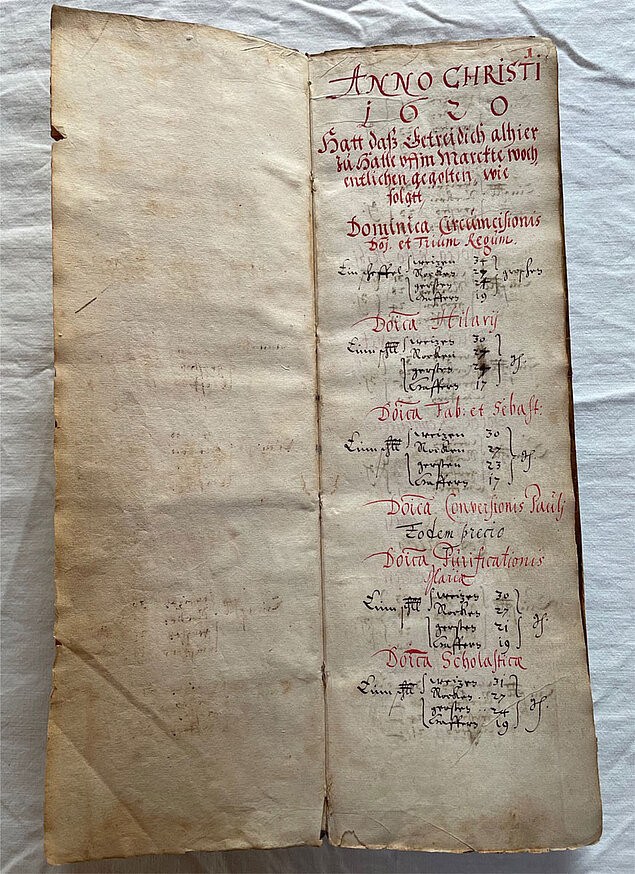 1.
ANNO CHRISTI
1620
Hatt daß Getreidich alhier
zu Halle uffm Marckte woch
entlichen gegolten, wie
folgtt,
Dominica Circumcisionis
Dnj. et Trium Regum.
Ein scheffel weizen 34 groschen
Rocken
gersten 24
Haffern 19
Doica Hilarij
Ein schll weizen 30 gl.
Rocken
gersten
Haffern 17
Doica Fab: et Sebast:
Ein schll weizen 30 gl.
Rocken 27
gersten 23
Haffern 17
Doica Conversionis Pauli
Eodem precio
Doica Purificationis
Mariæ
Ein schll weizen 30 gl.
Rocken 27
gersten 21
Haffern 19
Doica Scholasticæ
Ein schll weizen 31 gl.
Rocken 27
gersten 24
Haffern 19